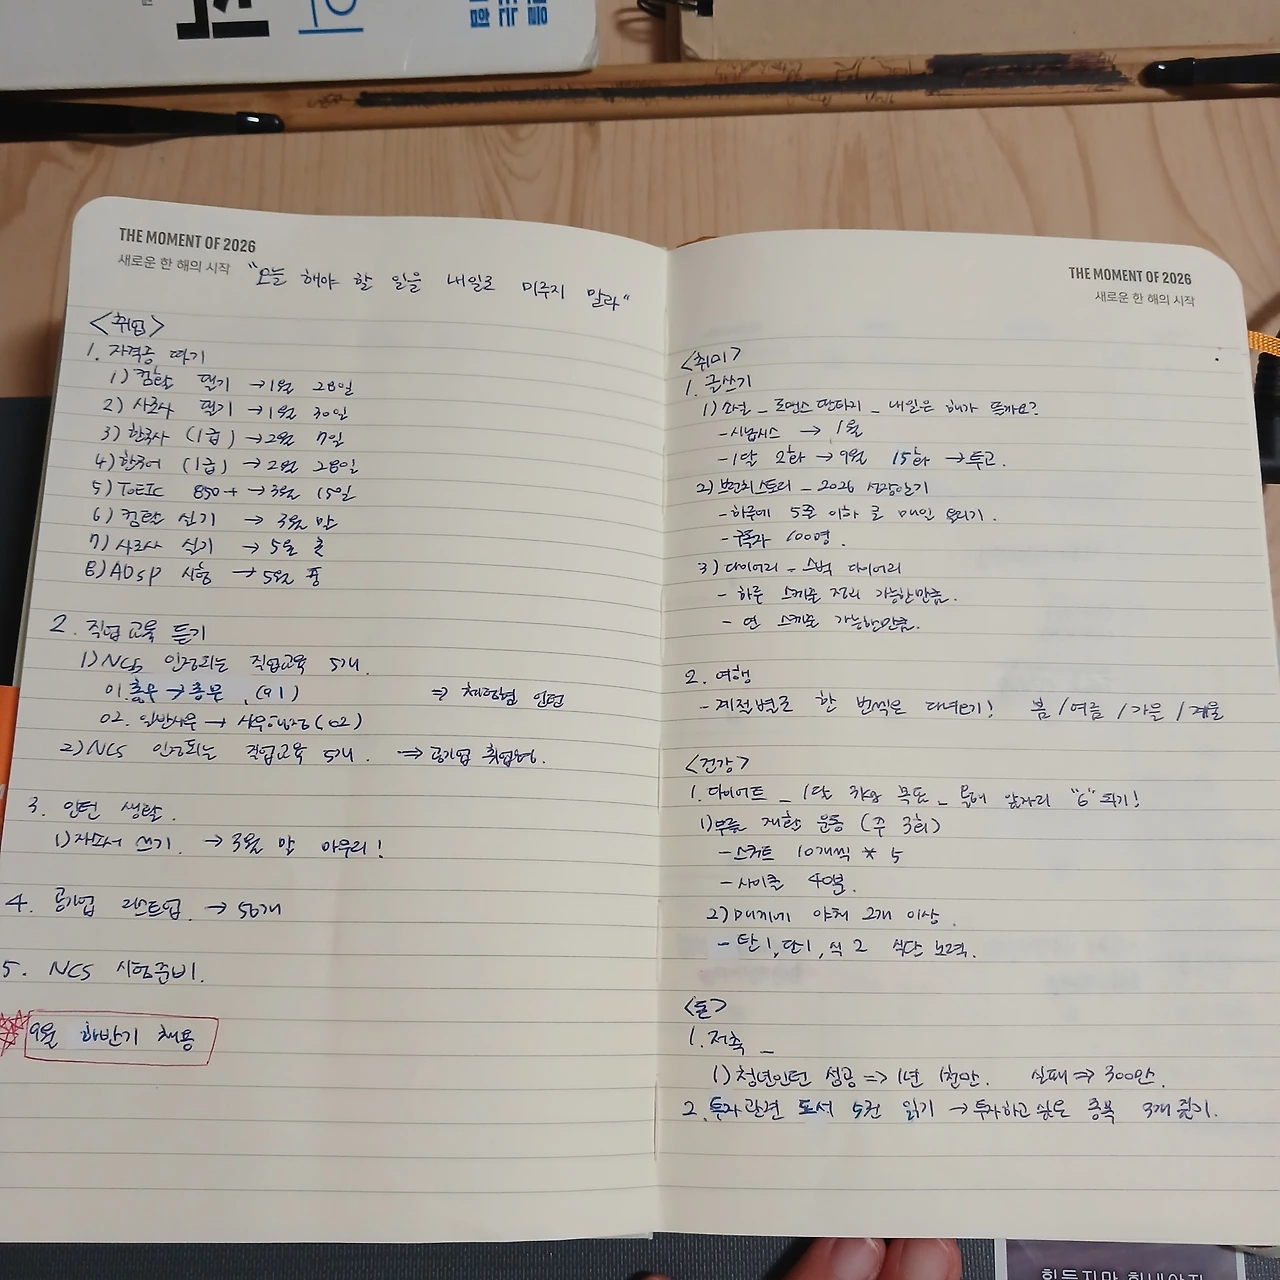 THE MOMENT OF 2026
새로운 한 해의 시작
"오늘 해야 할 일을 내일로 미루지 말라"
<취업>
1. 자격증 따기
1) 컴활 필기 → 1월 28일
2) 사조사 필기 → 1월 30일
3) 한국사 (1급) → 2월 7일
4) 한국어 (1급) → 2월 28일
5) TOEIC 850+ → 3월 15일
6) 컴활 실기 → 3월 말
7) 사조사 실기 → 5월 초
8) ADsP 시험 → 5월 중
2. 직업교육 듣기
1) NCS 인정되는 직업교육 5개.
01. 총무 → 총무 (01) ⇒ 체험형 인턴
02. 일반사무 → 사무행정(02)
2) NCS 인정되는 직업교육 5개. ⇒ 공기업 취업용.
3. 인턴 생활.
1) 자소서 쓰기. → 3월 말 마무리!
4. 공기업 리스트업. → 50개
5. NCS 시험준비.
9월 하반기 채용
THE MOMENT OF 2026
새로운 한 해의 시작
<취미>
1. 글쓰기
1) 소설 _ 로맨스판타지 _ 내일은 해가 뜰까요?
- 시놉시스 → 1월
- 1달 2화 → 9월 15화 → 투고.
2) 브런치스토리 _ 2026 성장일기
- 하루에 5줄 이하 글 매일 올리기.
- 구독자 100명.
3) 다이어리 - 스벅 다이어리
- 하루 스케줄 정리 가능한만큼.
- 연 스케줄 가능한만큼.
2. 여행
- 계절별로 한 번씩은 다녀오기! 봄/여름/가을/겨울
<건강>
1. 다이어트 _ 1달 감량 목표 _ 몸무게 앞자리 "6" 되기!
1) 무릎 재활 운동 (주 3회)
- 스쿼트 10개씩 * 5
- 사이클 40분.
2) 매끼니 야채 2개 이상.
- 탄1, 단1, 식2 식단 노력.
<돈>
1. 저축 _
1) 청년인턴 성공 => 1년 1천만. 실패 => 300만.
2. 투자관련 도서 5권 읽기 → 투자하고 싶은 종목 3개 찾기.